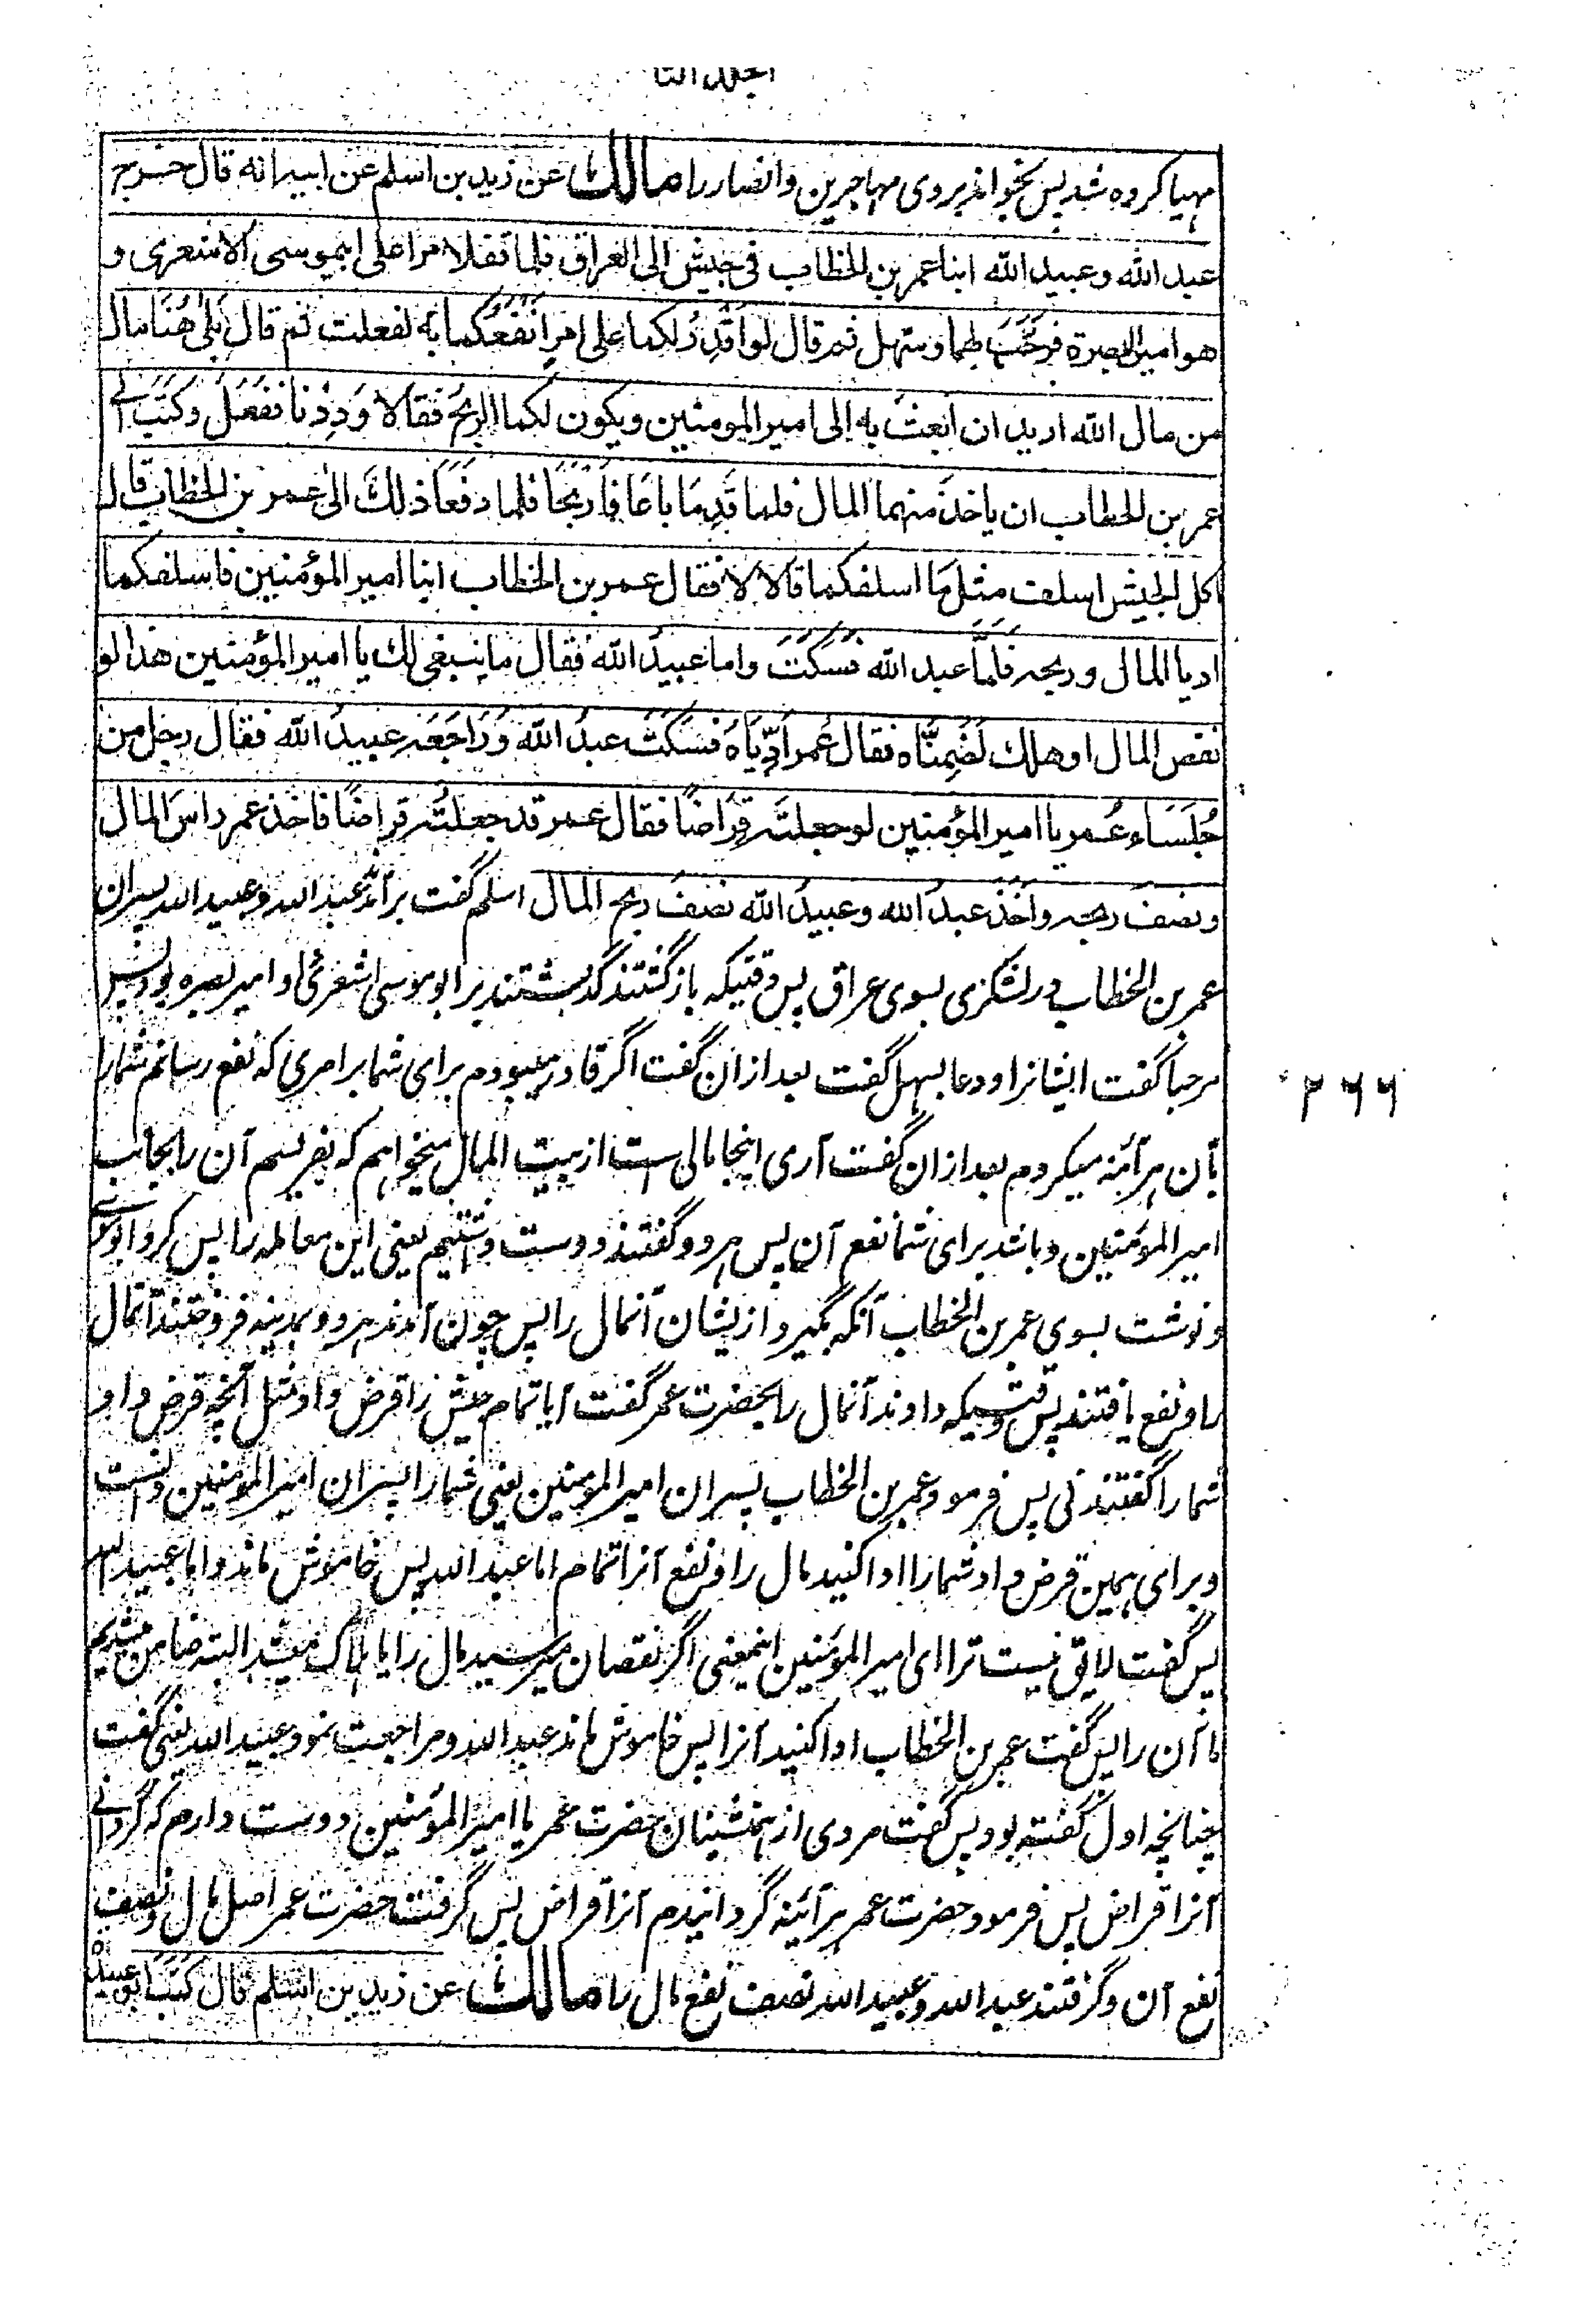 مهیا کرده شد پس بخواند بروی مهاجرین وانصار را مالك عن زيد بن اسلم عن ابيه انه قال خرج
عبد الله وعبيد الله ابنا عمر بن الخطاب فى جيش الى العراق فلما قفلا مرا على ابيموسى الاشعرى و
هو امير البصرة فَرَحَّبَ بهما وسهل ثم قال لو اَقْدِرُ لكما على امرٍ اَنْفَعُكُما به لفعلت ثم قال بَلٰى هٰهُنَا مال
من مال الله اريد ان ابعثَ به الى امير المومنين ويكون لكما الربح فقالا وَدِدْنا ففَعَلَ وكَتَبَ الى
عمر بن الخطاب ان ياخذَ منهما المال فلما قَدِمَا باعَا فاَرْبَحَا فلما دفَعَا ذلك الى عمر بن الخطاب قال
اكل الجيش اسلف مثل ما اسلفكما قالا لا فقال عمر بن الخطاب ابنا امير المؤمنين فاسلفكما
اديا المال وربحه فاَمّا عبد الله فسَكَتَ واما عبيدُ الله فقال ما ينبغى لك يا امير المؤمنين هذا لو
نقص المال او هلك لَضَمِنَّاه فقال عُمر اَدِّيَاهُ فسَكَتَ عبدُ الله وَرَاجَعَه عبيدُ الله فقال رجل من
جُلَسَاءِ عُمر يا امير المؤمنين لو جعلتَه قِرَاضًا فقال عمر قد جعلتُه قراضًا فاخذ عمر راسَ المال
ونصفَ ربحه واَخَذَ عبدُ الله وعبيدُ الله نصفَ ربح المال اسلم گفت برآمدند عبد الله وعبید الله پسران
عمر بن الخطاب در لشکری بسوی عراق پس وقتیکه بازگشتند گذشتند بر ابو موسی اشعری او امیر بصره بود پس
مرحبا گفت ایشانرا و دعا بسهل گفت بعد ازان گفت اگر قادر میبودم برای شما بر امری که نفع رسانم شمارا
بآن هرآئنه میکردم بعد ازان گفت آری اینجا مالی ست از بیت المال میخواهم که بفریسم آن را بجانب
امیر المؤمنین و باشد برای شما نفع آن پس هر دو گفتند دوست داشتیم یعنی این معامله را پس کرد ابو موسی
و نوشت بسوی عمر بن الخطاب آنکه بگیرد ازیشان آنمال را پس چون آمدند هر دو بمدینه فروختند آنمال
را و نفع یافتند پس وقتیکه دادند آنمال را بحضرت عمر گفت آیا تمام جیش را قرض داد مثل آنچه قرض داد
شمارا گفتند نی پس فرمود عمر بن الخطاب پسران امیر المومنین یعنی شمارا پسران امیر المومنین دانست
و برای همین قرض داد شمارا ادا کنید مال را و نفع آنرا تمام اما عبد الله پس خاموش ماند و اما عبید الله
پس گفت لائق نیست ترا ای امیر المؤمنین اینمعنی اگر نقصان میرسید مال را یا هلاک میشد البته ضامن میشدیم
ما آن را پس گفت عمر بن الخطاب ادا کنید آنرا پس خاموش ماند عبد الله و مراجعت نمود عبید الله یعنی گفت
چنانچه اول گفته بود پس گفت مردی از همنشینان حضرت عمر یا امیر المؤمنین دوست دارم که گردانی
آنرا قراض پس فرمود حضرت عمر هرآئینه گردانیدم آنرا قراض پس گرفت حضرت عمر اصل مال و نصف
نفع آن و گرفتند عبد الله و عبید الله نصف نفع مال را مالك عن زيد بن اسلم قال كَتَبَ ابو عبيدة
۲۶۶